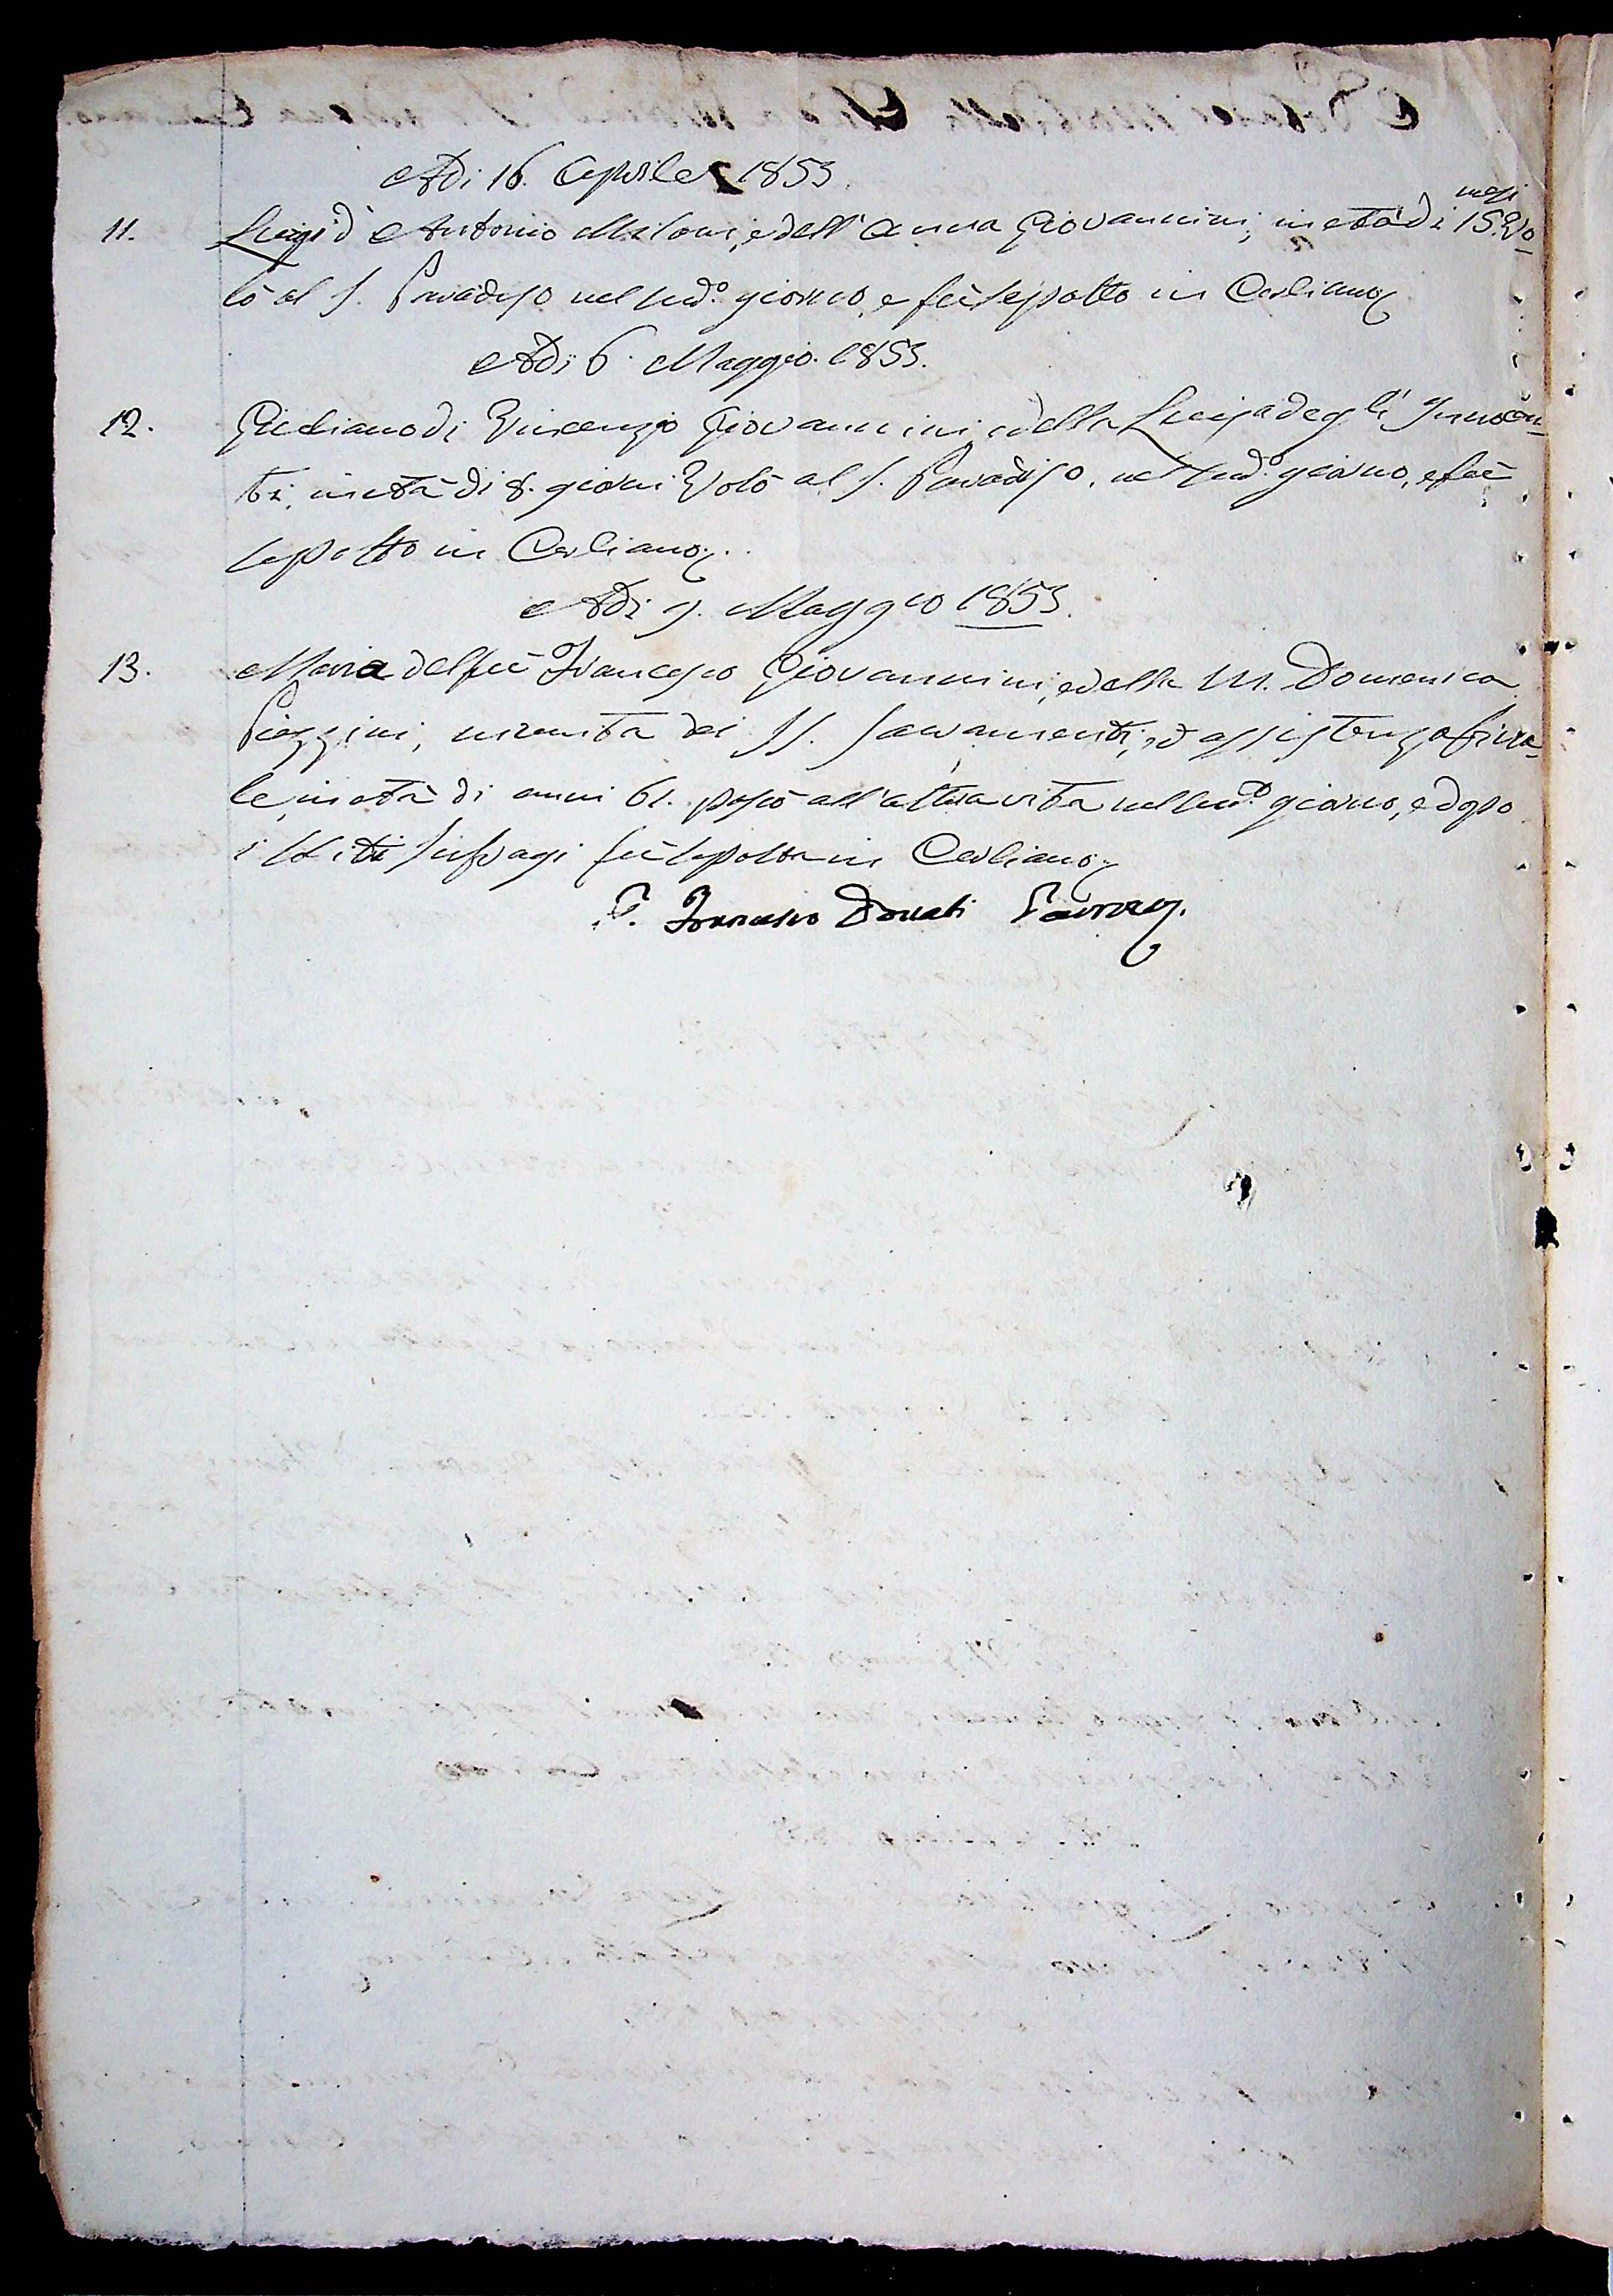 Adi 16. Aprile 1853.
mesi
11. Luigi d'Antonio Miloni, e dell'Anna Giovannini, in età di 15. Vo-
lò al S. Paradiso nel sud.º giorno, e fù sepolto in Corliano
Adi 6. Maggio. 1853.
12. Giuliano di Vincenzo Giovannini, e della Luisa degl'Innocen-
ti, in età di 8. giorni Volò al S. Paradiso, nel sud.º giorno, e fù
sepolto in Corliano.
Adi 9. Maggio 1853.
13. Maria del fù Francesco Giovannini, e della M. Domenica
Piazzini, munita dei SS. Sacramenti, ed assistenza fina-
le, in età di anni 61. passò all'altra vita nel sud.º giorno, e dopo
i soliti sufragi fù sepolta in Corliano
P. Francesco Donati